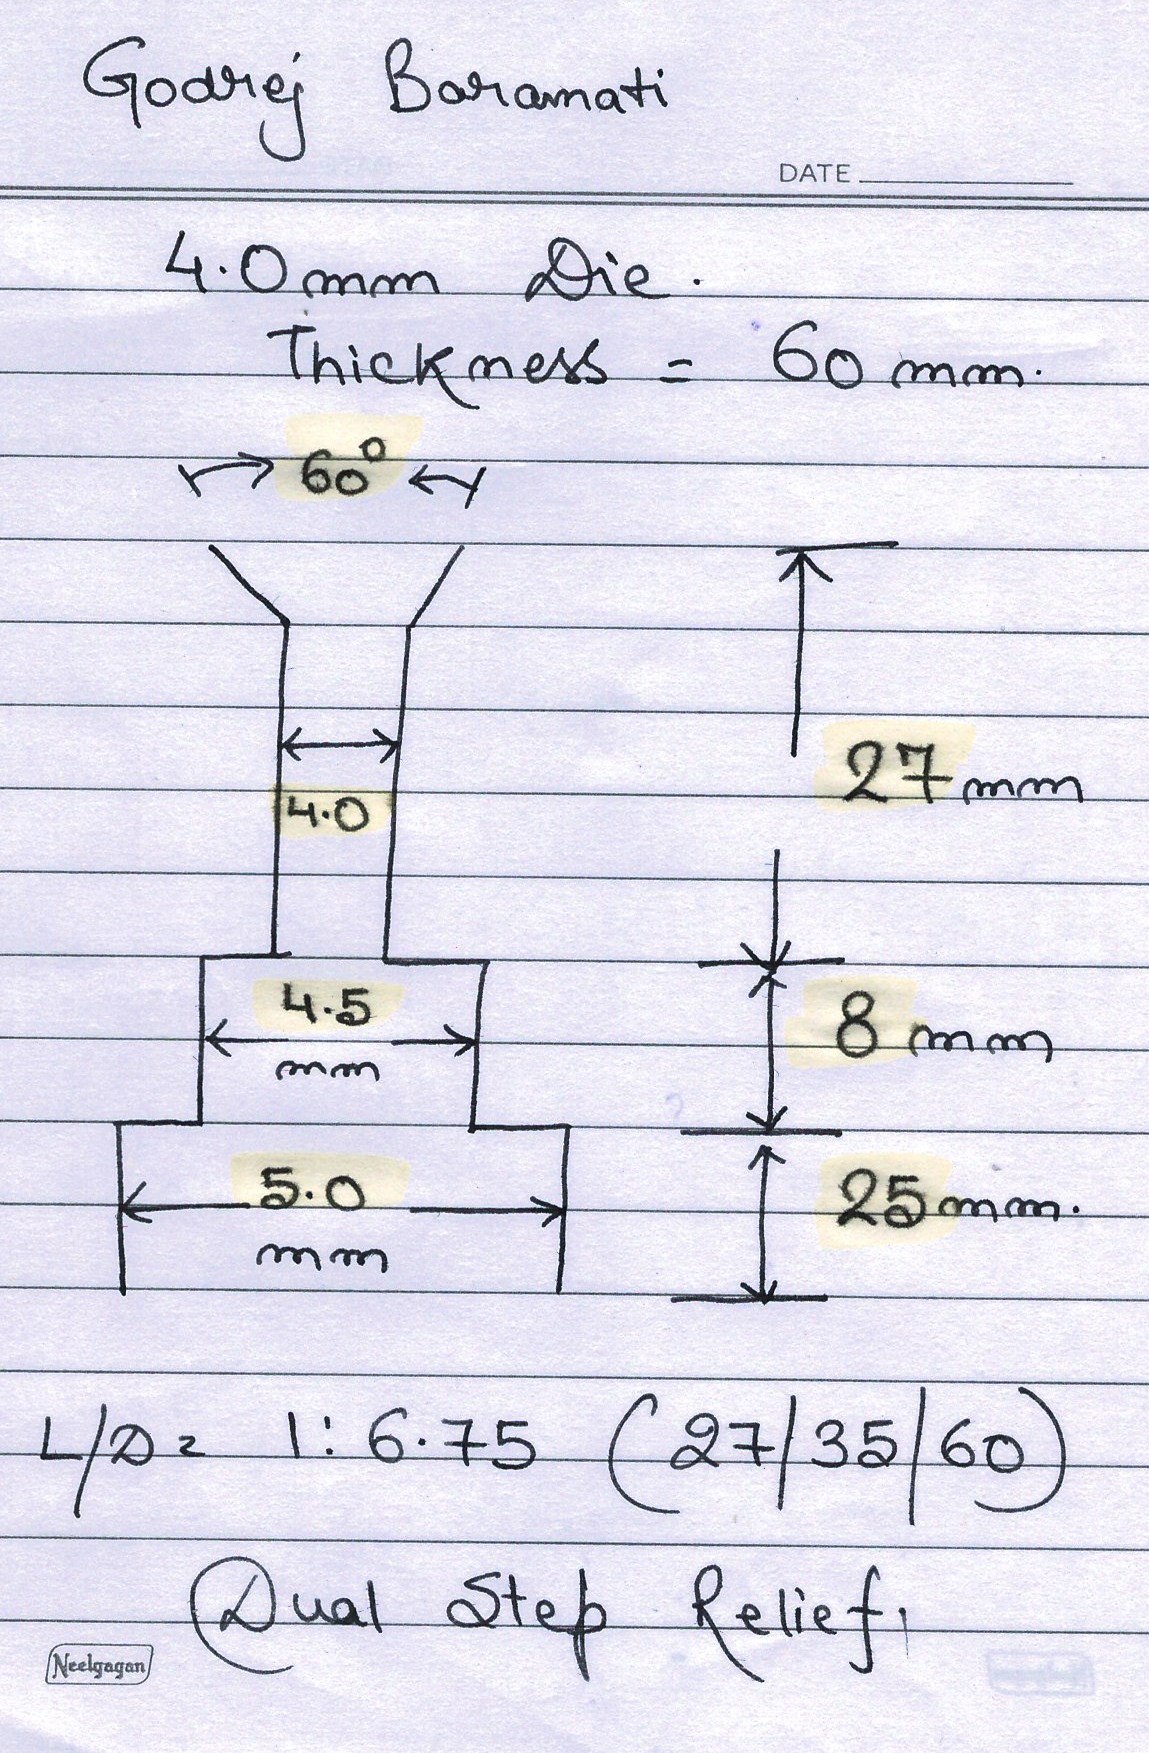 Godrej Baramati
DATE
4.0mm Die.
Thickness = 60 mm.
60°
27 mm
4.0
4.5
mm
8 mm
5.0
mm
25 mm.
L/D = 1:6.75 (27/35/60)
Dual Step Relief,
Neelgagan